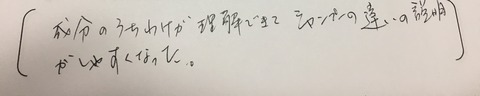 (成分のうちわけが理解できて シャンプーの違いの説明
がしやすくなった。